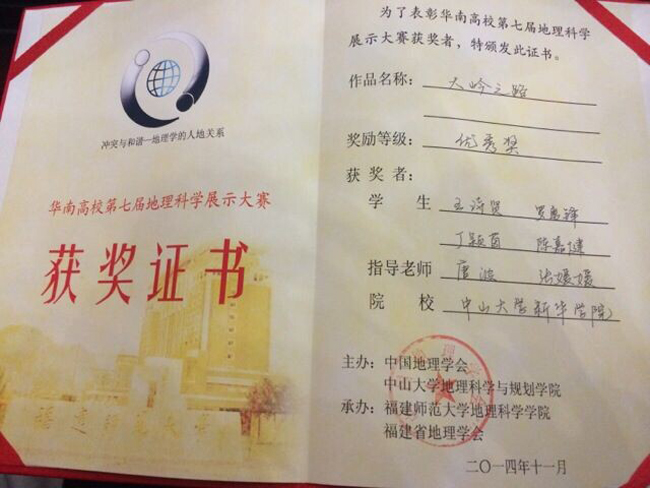 冲突与和谐—地理学的人地关系
华南高校第七届地理科学展示大赛
获奖证书
为了表彰华南高校第七届地理科学
展示大赛获奖者，特颁发此证书。
作品名称：大岭之路
奖励等级：优秀奖
获奖者：
学生
丁颖茵 陈嘉健
指导老师 张媛媛
院校 中山大学新华学院
主办：中国地理学会
中山大学地理科学与规划学院
承办：福建师范大学地理科学学院
福建省地理学会
二〇一四年十一月